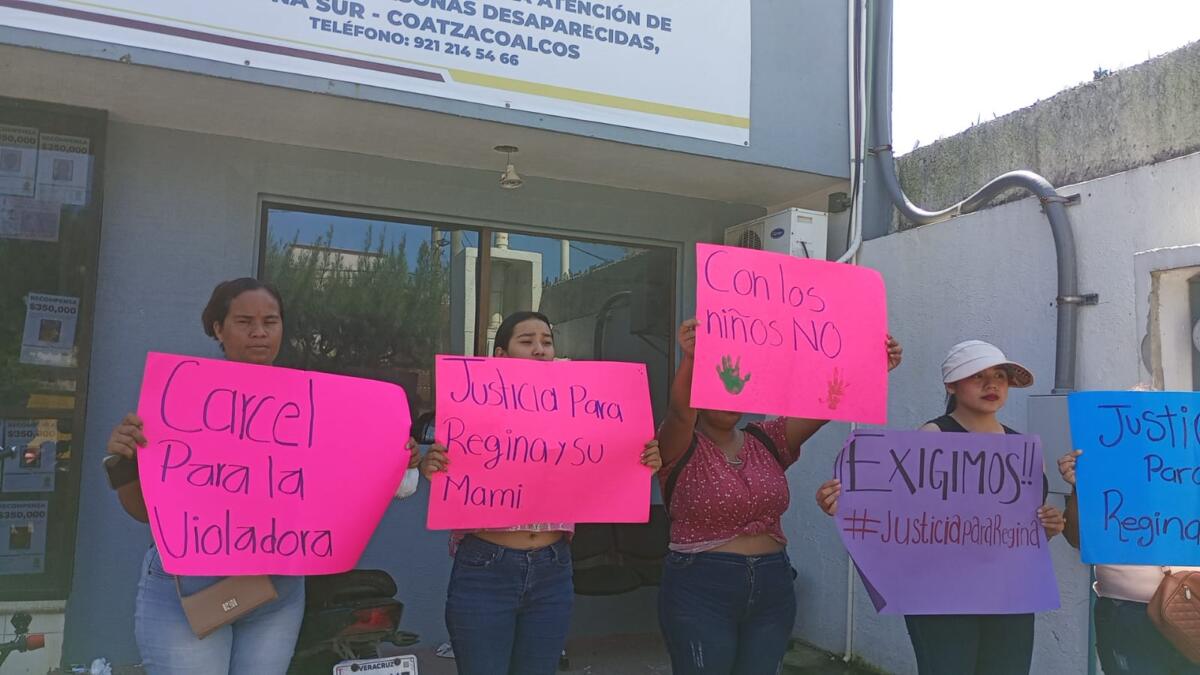 ATENCIÓN DE
ONAS DESAPARECIDAS,
NA SUR - COATZACOALCOS
TELÉFONO: 921 214 54 66
RECOMPENSA
$350,000
RECOMPENSA
$350,000
RECOMPENSA
$350,000
$350,000
$350,000
Carcel
Para la
Violadora
Justicia Para
Regina y su
Mami
Con los
niños NO
EXIGIMOS!!
#JusticiaparaRegina
Justic
Para
Regina
VERACRUZ